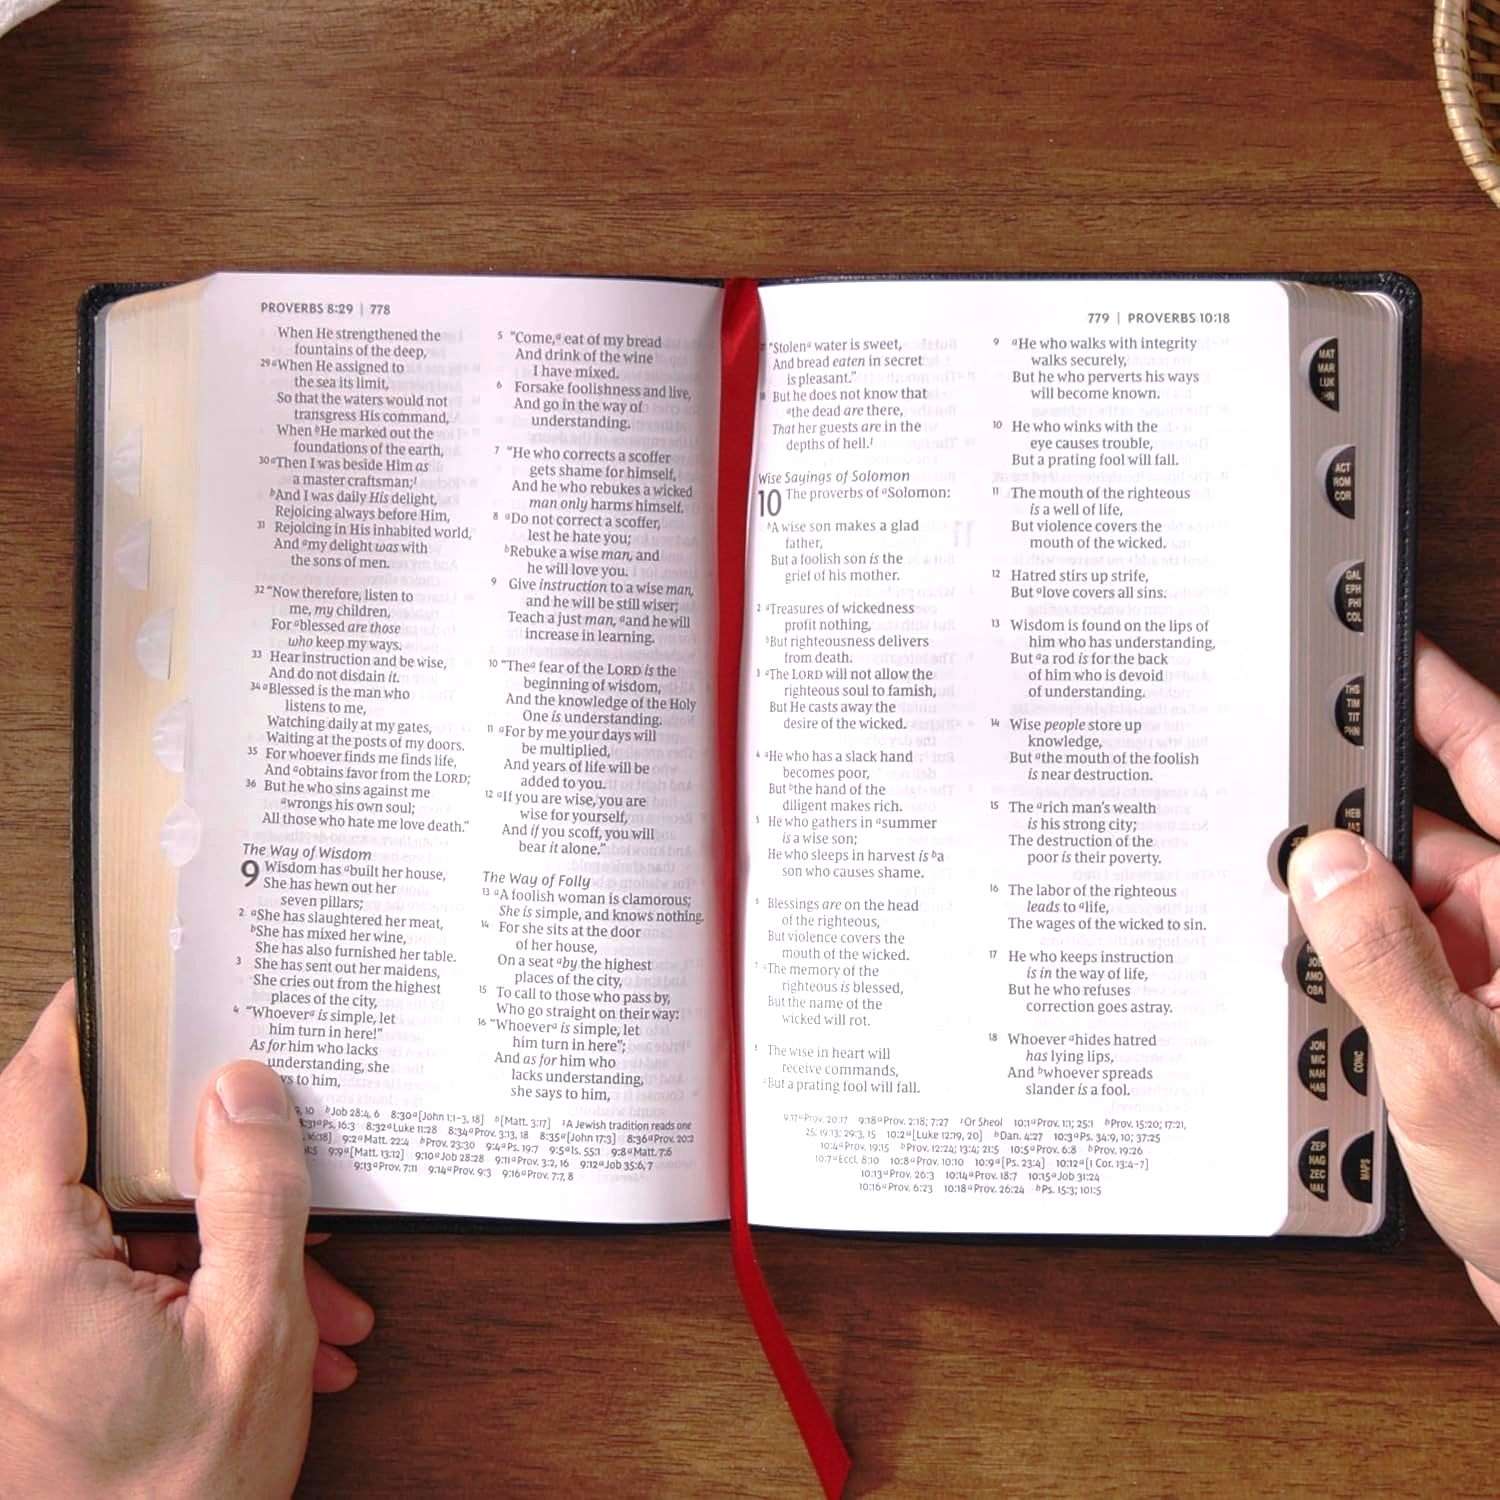 PROVERBS 8:29 | 778
When He strengthened the
fountains of the deep,
29 aWhen He assigned to
the sea its limit,
So that the waters would not
transgress His command,
When bHe marked out the
foundations of the earth,
30 aThen I was beside Him as
a master craftsman;1
bAnd I was daily His delight,
Rejoicing always before Him,
31 Rejoicing in His inhabited world,
And amy delight was with
the sons of men.
32 "Now therefore, listen to
me, my children,
For ablessed are those
who keep my ways.
33 Hear instruction and be wise,
And do not disdain it.
34 aBlessed is the man who
listens to me,
Watching daily at my gates,
Waiting at the posts of my doors.
35 For whoever finds me finds life,
And aobtains favor from the LORD;
36 But he who sins against me
awrongs his own soul;
All those who hate me love death."
The Way of Wisdom
9 Wisdom has abuilt her house,
She has hewn out her
seven pillars;
2 aShe has slaughtered her meat,
bShe has mixed her wine,
She has also furnished her table.
3 She has sent out her maidens,
She cries out from the highest
places of the city,
4 "Whoevera is simple, let
him turn in here!"
As for him who lacks
understanding, she
to him,
5 "Come,a eat of my bread
And drink of the wine
I have mixed.
6 Forsake foolishness and live,
And go in the way of
understanding.
7 "He who corrects a scoffer
gets shame for himself,
And he who rebukes a wicked
man only harms himself.
8 aDo not correct a scoffer,
lest he hate you;
bRebuke a wise man, and
he will love you.
9 Give instruction to a wise man,
and he will be still wiser;
Teach a just man, aand he will
increase in learning.
10 "Thea fear of the LORD is the
beginning of wisdom,
And the knowledge of the Holy
One is understanding.
11 aFor by me your days will
be multiplied,
And years of life will be
added to you.
12 aIf you are wise, you are
wise for yourself,
And if you scoff, you will
bear it alone."
The Way of Folly
13 aA foolish woman is clamorous;
She is simple, and knows nothing.
14 For she sits at the door
of her house,
On a seat aby the highest
places of the city,
15 To call to those who pass by,
Who go straight on their way:
16 "Whoevera is simple, let
him turn in here";
And as for him who
lacks understanding,
she says to him,
10 bJob 28:4, 6 8:30 a[John 1:1–3, 18] b[Matt. 3:17] 1A Jewish tradition reads one
8:31 aPs. 16:3 8:32 aLuke 11:28 8:34 aProv. 3:13, 18 8:35 a[John 17:3] 8:36 aProv. 20:2
9:2 aMatt. 22:4 bProv. 23:30 9:4 aPs. 19:7 9:5 aIs. 55:1 9:8 aMatt. 7:6
9:9 a[Matt. 13:12] 9:10 aJob 28:28 9:11 aProv. 3:2, 16 9:12 aJob 35:6, 7
9:13 aProv. 7:11 9:14 aProv. 9:3 9:16 aProv. 7:7, 8
779 | PROVERBS 10:18
"Stolena water is sweet,
And bread eaten in secret
is pleasant."
But he does not know that
athe dead are there,
That her guests are in the
depths of hell.1
Wise Sayings of Solomon
10 The proverbs of aSolomon:
bA wise son makes a glad
father,
But a foolish son is the
grief of his mother.
2 aTreasures of wickedness
profit nothing,
bBut righteousness delivers
from death.
3 aThe LORD will not allow the
righteous soul to famish,
But He casts away the
desire of the wicked.
4 aHe who has a slack hand
becomes poor,
But bthe hand of the
diligent makes rich.
5 He who gathers in asummer
is a wise son;
He who sleeps in harvest is ba
son who causes shame.
Blessings are on the head
of the righteous,
But violence covers the
mouth of the wicked.
7 aThe memory of the
righteous is blessed,
But the name of the
wicked will rot.
The wise in heart will
receive commands,
aBut a prating fool will fall.
9 aHe who walks with integrity
walks securely,
But he who perverts his ways
will become known.
10 He who winks with the
eye causes trouble,
But a prating fool will fall.
11 The mouth of the righteous
is a well of life,
But violence covers the
mouth of the wicked.
12 Hatred stirs up strife,
But alove covers all sins.
13 Wisdom is found on the lips of
him who has understanding,
But aa rod is for the back
of him who is devoid
of understanding.
14 Wise people store up
knowledge,
But athe mouth of the foolish
is near destruction.
15 The arich man's wealth
is his strong city;
The destruction of the
poor is their poverty.
16 The labor of the righteous
leads to alife,
The wages of the wicked to sin.
17 He who keeps instruction
is in the way of life,
But he who refuses
correction goes astray.
18 Whoever ahides hatred
has lying lips,
And bwhoever spreads
slander is a fool.
9:17 aProv. 20:17 9:18 aProv. 2:18; 7:27 1Or Sheol 10:1 aProv. 1:1; 25:1 bProv. 15:20; 17:21,
25; 19:13; 29:3, 15 10:2 a[Luke 12:19, 20] bDan. 4:27 10:3 aPs. 34:9, 10; 37:25
10:4 aProv. 19:15 bProv. 12:24; 13:4; 21:5 10:5 aProv. 6:8 bProv. 19:26
10:7 aEccl. 8:10 10:8 aProv. 10:10 10:9 a[Ps. 23:4] 10:12 a[1 Cor. 13:4–7]
10:13 aProv. 26:3 10:14 aProv. 18:7 10:15 aJob 31:24
10:16 aProv. 6:23 10:18 aProv. 26:24 bPs. 15:3; 101:5
MAT
MAR
LUK
ACT
ROM
COR
GAL
EPH
PHI
COL
THS
TIM
TIT
PHN
HEB
JAS
AMO
OBA
JON
MIC
NAH
HAB
CONC
ZEP
HAG
ZEC
MAL
MAPS